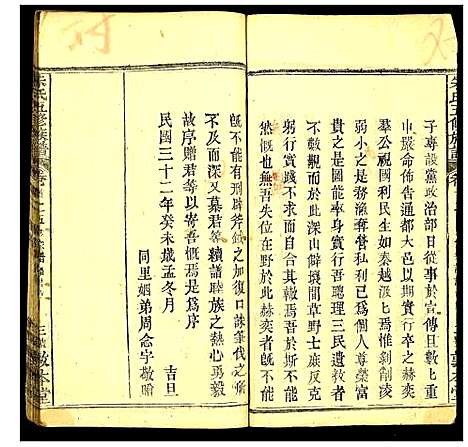 朱氏五修族譜
子專設黨政治部日從事於宣傳旦數上重
申嚴命佈告通都大邑以期實行奉之赫奕
羣公視國利民生如秦越泼上焉惟剝削
弱小之是務漁奪營私利己爲個人尊榮富
貴之是圖能率身實行吾聰理三民遺教者
不數觀而於此深山僻壤間草野士族反克
躬行實踐不求而合其轍焉吾於斯不能
然慨也無吾失位在野於此赫奕者旣不能
旣不能有刑辟斧鉞之加復口誅筆伐之俱
不及而深又慕君等續譜睦族之熱心勇毅
故序贈君等以寄吾慨焉是爲序
民國三十二年癸未歲孟冬月　吉旦
同里姻弟周念宇敬贈
朱氏五修族譜
敦本堂